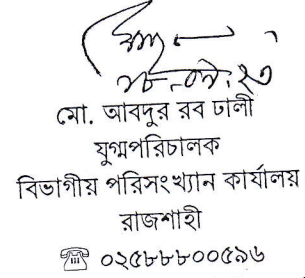 মো. আবদুর রব ঢালী
যুগ্মপরিচালক
বিভাগীয় পরিসংখ্যান কার্যালয়
রাজশাহী
☎ ০২৫৮৮৮০০৫৯৬